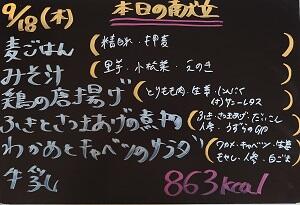 9/18(木) 本日の献立
麦ごはん (精白米・押麦
みそ汁 (里芋・小松菜・えのき
鶏の唐揚げ (とりもも肉・生姜・にんにく
サニーレタス
ふきとさつまあげの煮物 (ふき・さつまあげ・だいこん
人参・うずらの卵
わかめとキャベツのサラダ (ワカメ・キャベツ・生姜
もやし・人参・白ごま
牛乳 863kcal